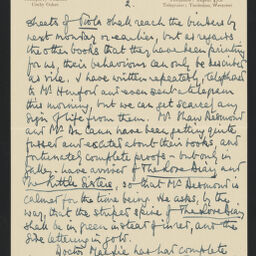 2.
sheets of Stole shall reach the binders by
next monday or earlier, but as regards
the other books that they have been printing
for us, their behaviour can only be described
as vile. I have written repeatedly, telephoned
to Mr and even sent a telegram
this morning, but we can get scarcely any
sign of life from them. Mr Shaw Desmond
and Mr have been getting quite
fussed and excited about their books and
fortunately complete proofs - but only in
galley - have arrived of The Love Diary and
The Little Sisters, so that Mr Desmond is
calmer for the time being. He asks, by the
way, that the striped spine of The Love Diary
shall be in green instead of in red, and the
side lettering in gold.
Doctor has had complete